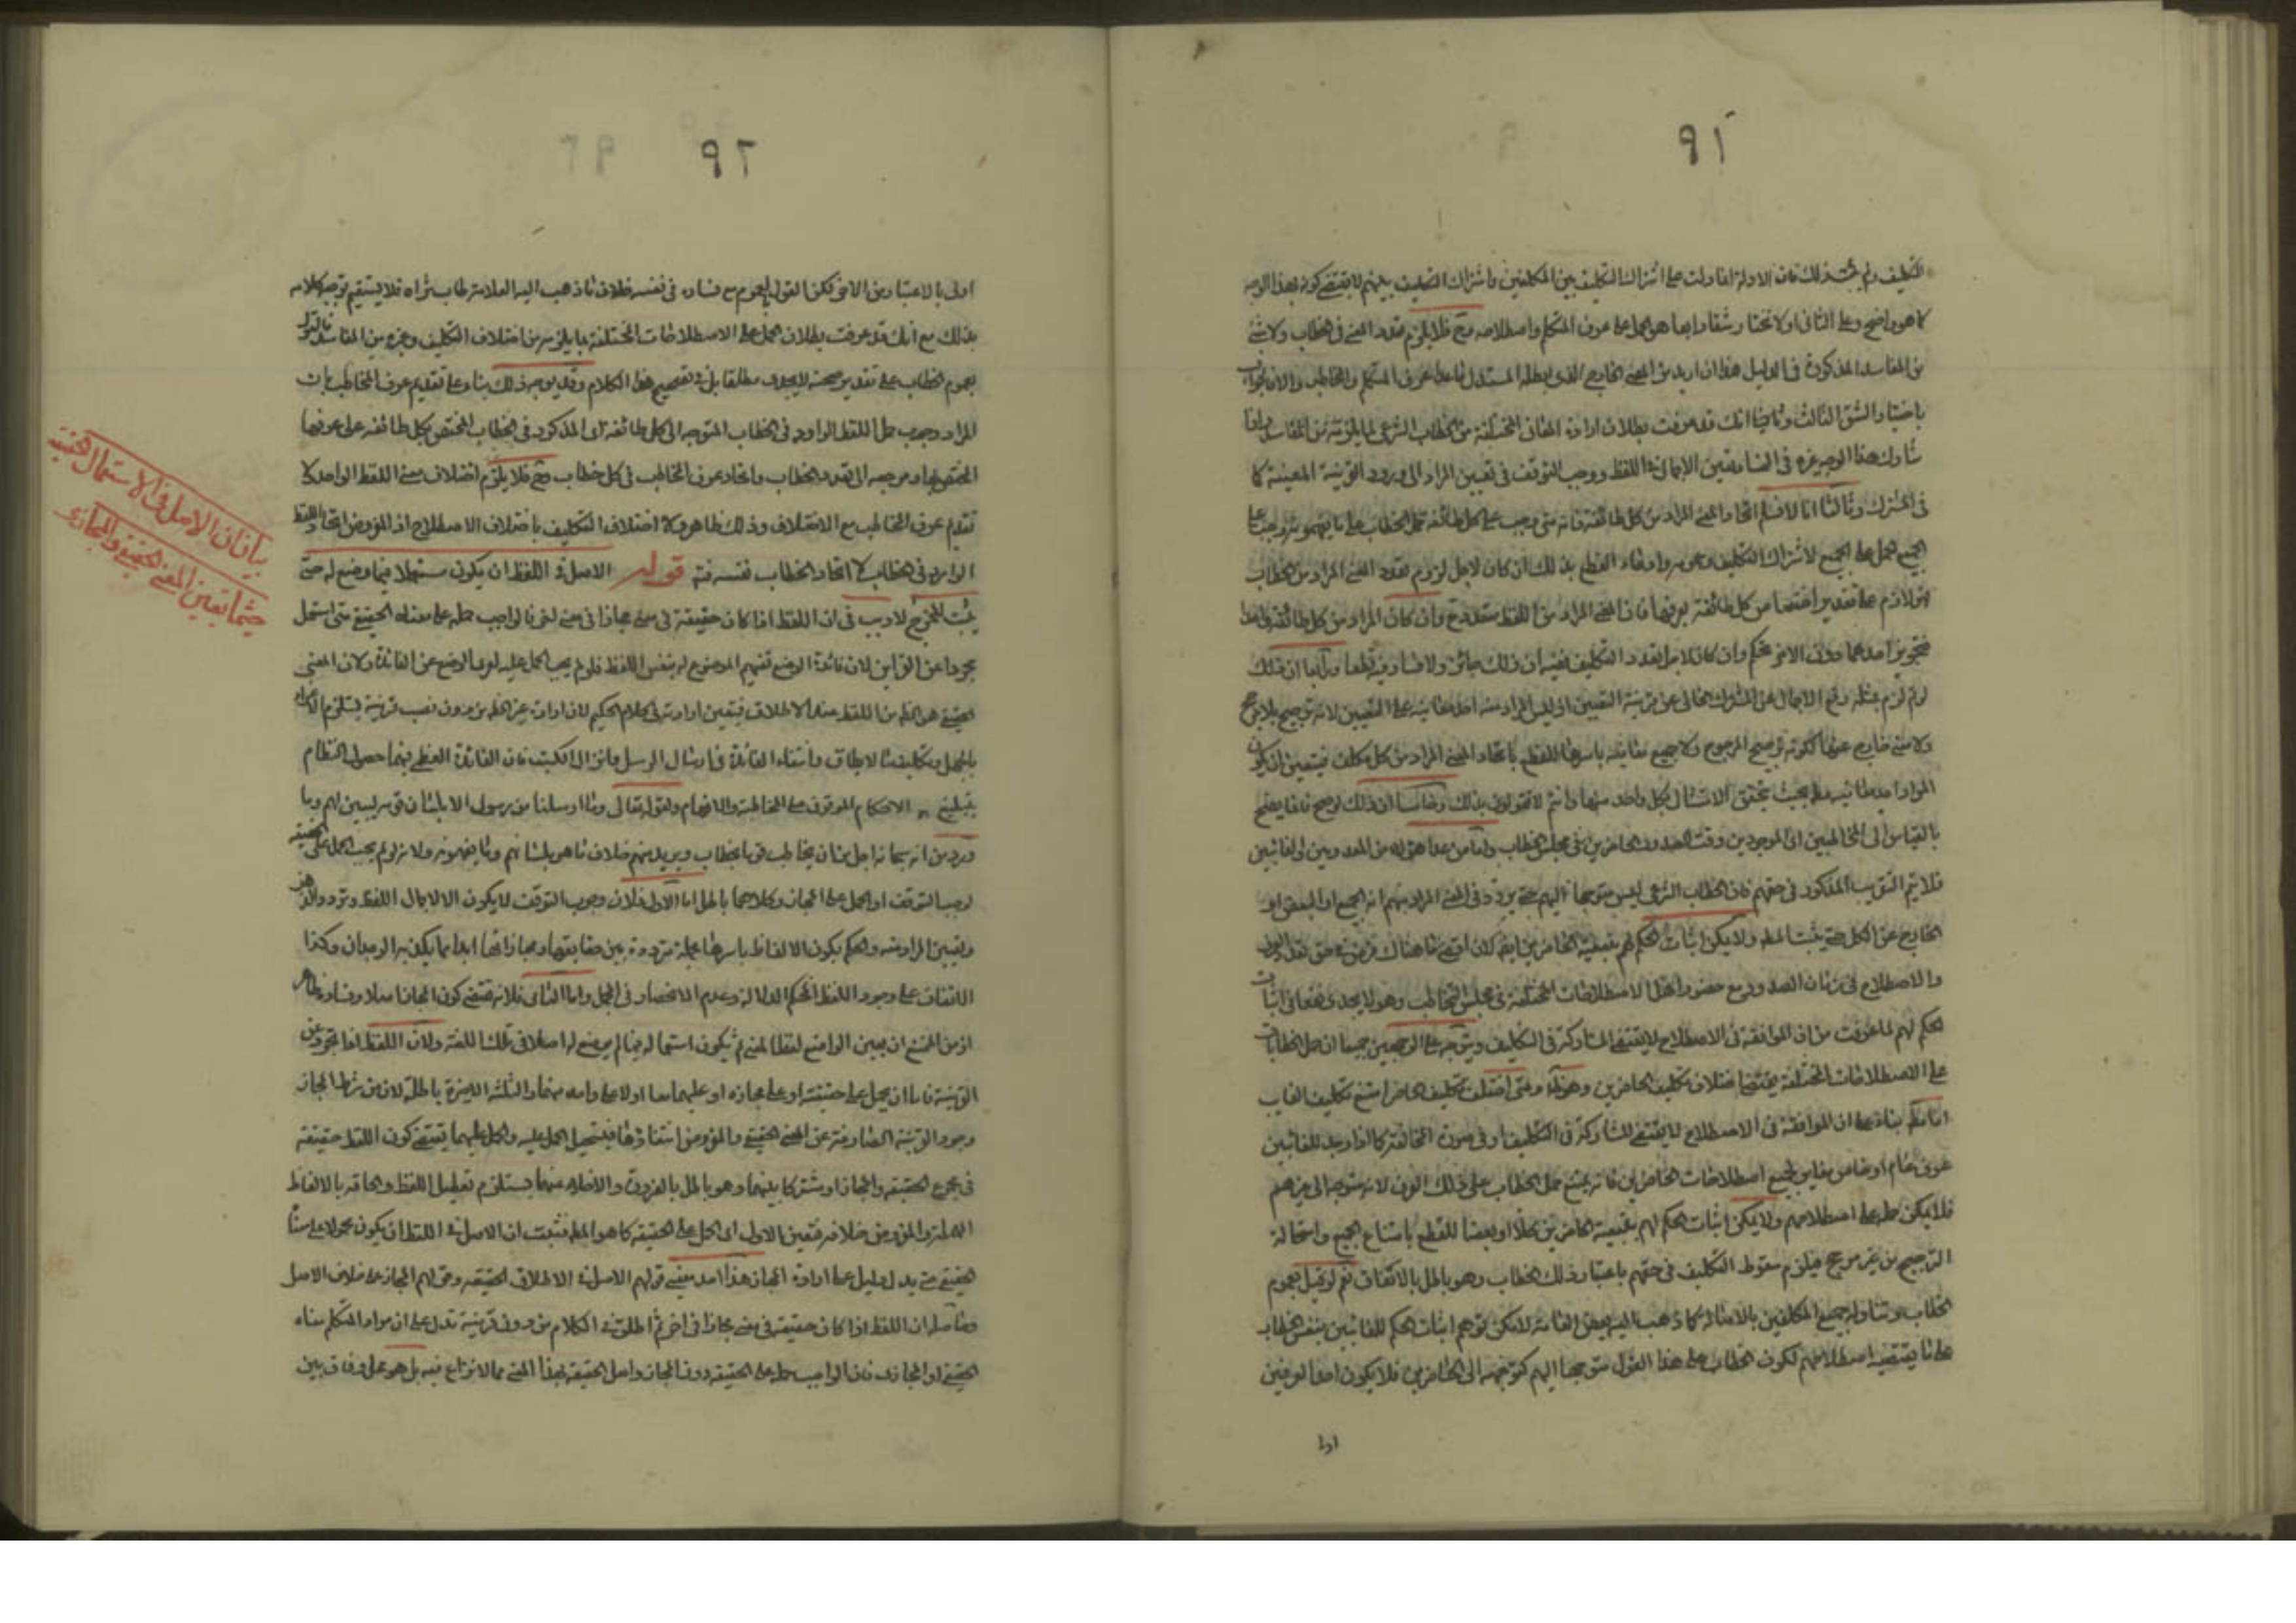 ٩١
التكليف ولم يثبت ذلك فان الادلة انما دلت على اشتراك التكليف بين المكلفين واشتراك التكليف بينهم لا يقتضي كونه بهذا الوجه
كما هو واضح وعلى الثاني اولا نختار شقا رابعا هو الحمل على عرف المتكلم واصطلاحه فلا يلزم تعدد المعنى في الخطاب ولا شئ
من المفاسد المذكورة في الدليل هذا ان اريد من المعنى الخارج الذي ابطله المستدل ما عدا عرف المتكلم والمخاطب والا فالجواب
باختيار الشق الثالث وثانيا انك قد عرفت بطلان ارادة المعاني المختلفة من الخطاب الشرعي لما يلزمه من المفاسد
شارك هذا الوجه غيره في الفساد تعين الاجمال في اللفظ ووجب التوقف في تعيين المراد الى ورود القرينة المعينة كما
في المشترك وثالثا انا لا نسلم اتحاد المعنى المراد من كل طائفة فانه متى وجب على كل طائفة حمل الخطاب على ما يفهمونه وجب على
الجميع الحمل على الجميع لاشتراك التكليف وعمومه وادعاء القطع بذلك ان كان لاجل لزوم تعدد المعنى المراد من الخطاب
فهو لازم على تقدير اختصاص كل طائفة بعرفها فان المعنى المراد من اللفظ متعدد ح وان كان المراد من كل طائفة واحدا
فتجويز احدهما دون الاخر تحكم وان كان لاجل تعدد التكليف ففيه ان ذلك جائز ولا فساد فيه قطعا ورابعا ان ذلك
لو تم لزم مثله رفع الاجمال عن المشترك الخالي عن قرينة التعيين اذ ليس المراد منه احد معانيه على التعيين لانه ترجيح بلا مرجح
ولا معنى خارج عنها لكونه ترجيح المرجوح ولا جميع معانيه باسرها للقطع باتحاد المعنى المراد من كل مكلف فيتعين ان يكون
المراد احد معانيه بحيث يتحقق الامتثال بكل واحد منها وانتم لا تقولون بذلك وخامسا ان ذلك لو صح فانما يصح
بالقياس الى المخاطبين اي الموجودين وقت الصدور الحاضرين في مجلس الخطاب واما من عداهم من المعدومين او الغائبين
فلا يتم التقريب المذكور في حقهم فان الخطاب الشرعي ليس متوجها اليهم حتى يردد في المعنى المراد بهم انه الجميع او البعض او
الخارج عن الكل حتى يثبت ولا يمكن اثبات الحكم لهم بتبعية الحاضرين لان اقصى ما هناك فرض تحقق تعدد العرف
والاصطلاح في زمان الصدور مع حضور اهل الاصطلاحات المختلفة في مجلس التخاطب وهو لا يجدي نفعا في اثبات
الحكم لهم لما عرفت من ان الموافقة في الاصطلاح لا يقتضي المشاركة في التكليف ويتوجه على الوجهين جميعا ان حمل الخطابات
على الاصطلاحات المختلفة يقتضي اختلاف تكليف الحاضرين ومتى اختلف تكليف الحاضر امتنع تكليف الغائب
اما بناء على ان الموافقة في الاصطلاح لا يقتضي المشاركة في التكليف او في صورة المخالفة كما اذا وجد للغائبين
عرف عام او خاص مغاير لجميع اصطلاحات الحاضرين فانه يمتنع حمل الخطاب على ذلك العرف لانه متوجه الى غيرهم
فلا يمكن حمله على اصطلاحهم ولا يمكن اثبات الحكم لهم بتبعية الحاضرين كلا او بعضا للقطع بامتناع الجميع واستحالة
الترجيح من غير مرجح فيلزم سقوط التكليف في حقهم باعتبار ذلك الخطاب وهو باطل بالاتفاق نعم لو قيل بعموم
الخطاب وتناوله جميع المكلفين بالاصالة كما ذهب اليه بعض العامة لامكن توهم اثبات الحكم للغائبين بنفس الخطاب
على ما يقتضيه اصطلاحهم لكون الخطاب على هذا القول متوجها اليهم كتوجهه الى الحاضرين فلا يكون احد العرفين
اولى
٩٢
اولى بالاعتبار من الاخر لكن القول بالعموم مع فساده في نفسه خلاف ما ذهب اليه العلامة طاب ثراه فلا يستقيم توجيه كلامه
بذلك مع انك قد عرفت بطلان الحمل على الاصطلاحات المختلفة بما يلزمه من اختلاف التكليف وغيره من المفاسد فالقول
بعموم الخطاب على تقدير صحته لا يجدي مطلقا بل في تصحيح هذا الكلام وقد يوجه ذلك بناء على تقديم عرف المخاطب بان
المراد وجوب حمل اللفظ الوارد في الخطاب المتوجه الى كل طائفة اي المذكور في الخطاب المختص بكل طائفة على عرفها
المختص بها ومرجعه الى تعدد الخطاب واتحاد عرف المخاطب في كل خطاب وح فلا يلزم اختلاف معنى اللفظ الواحد لا
تقديم عرف المخاطب مع الاختلاف وذلك ظاهر ولا اختلاف التكليف باختلاف الاصطلاح اذ المفروض اتحاد اللفظ
الوارد في الخطاب لا اتحاد الخطاب نفسه فتد قوله الاصل في اللفظ ان يكون مستعملا فيما وضع له حتى
يثبت المخرج لا ريب في ان اللفظ اذا كان حقيقة في معنى مجازا في معنى اخر فالواجب حمله على معناه الحقيقي متى استعمل
مجردا عن القراين لان فائدة الوضع تفهيم الموضوع له بنفس اللفظ فلو لم يجب الحمل عليه لعرى الوضع عن الفائدة ولان المعنى
الحقيقي هو الظ من اللفظ عند الاطلاق فيتعين ارادته في كلام الحكيم لان ارادة غير الظ من دون نصب قرينة يستلزم الاغراء
بالجهل وتكليف ما لا يطاق وانتفاء الفائدة في ارسال الرسل وانزال الكتب فان الفائدة العظمى فيهما حصول النظام
بتبليغ الاحكام الموقوف على المخاطبة والافهام ولقوله تعالى وما ارسلنا من رسول الا بلسان قومه ليبين لهم وما
ورد من انه سبحانه اجل من ان يخاطب قوما بخطاب ويريد منهم خلاف ما هو بلسانهم وما يفهمونه ولانه لو لم يجب الحمل على الحقيقة
لوجب التوقف او الحمل على المجاز وكلاهما باطل اما الاول فلان وجوب التوقف لا يكون الا لاجمال اللفظ وتردد الذهن
وتعيين المراد منه والحكم بكون الالفاظ باسرها مجملة مترددة بين حقايقها ومجازاتها ابدا مما يكذبه الوجدان وكذا
الاتفاق على وجود اللفظ المحكم الدلالة وعدم الانحصار في المجمل واما الثاني فلانه يقتضي كون المجاز اصلا وفساده ظاهر
اذ من الممتنع ان يعين الواضع لفظا لمعنى ثم يكون استعماله فيما لم يوضع له اصلا في تلك اللغة ولان اللفظ اذا تجرد عن
القرينة فاما ان يحمل على حقيقته او على مجازه او عليهما معا او لا على واحد منهما والثلثة الاخيرة باطلة لان من شرط المجاز
وجود القرينة الصارفة عن المعنى الحقيقي والمفروض انتفاؤها فيستحيل الحمل عليه والحمل عليهما يقتضي كون اللفظ حقيقة
في مجموع الحقيقة والمجاز او مشتركا بينهما وهو باطل بالفرض والاخلاء عنهما يستلزم تعطيل اللفظ والحاقه بالالفاظ
المهملة والمفروض خلافه فتعين الاول اي الحمل على الحقيقة كما هو المط فثبت ان الاصل في اللفظ ان يكون محمولا على معناه
الحقيقي حتى يدل دليل على ارادة المجاز هذا احد معنيي قولهم الاصل في الاطلاق الحقيقة وقولهم المجاز على خلاف الاصل
وحاصله ان اللفظ اذا كان حقيقة في معنى مجازا في اخر ثم اطلق في الكلام من دون قرينة تدل على ان مراد المتكلم معناه
الحقيقي او المجازي فان الواجب حمله على الحقيقة دون المجاز واصل الحقيقة بهذا المعنى مما لا نزاع فيه بل هو محل وفاق بين
بيان ان الاصل في الاستعمال الحقيقة
حيثما تعين المعنى الحقيقي والمجازي